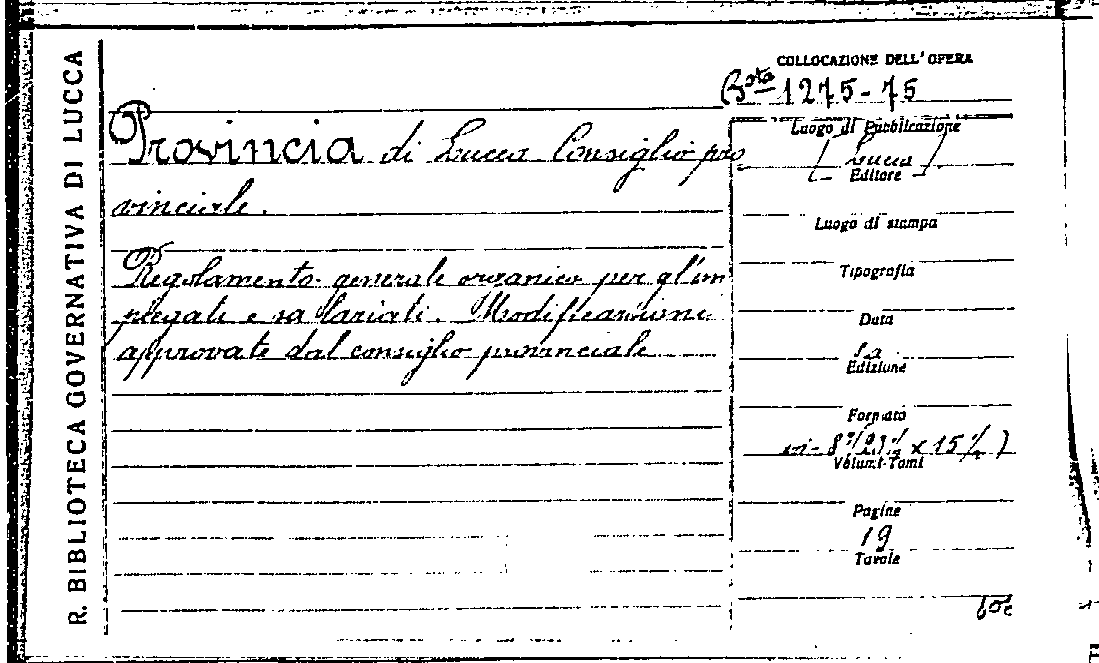 R. BIBLIOTECA GOVERNATIVA DI LUCCA
COLLOCAZIONE DELL'OPERA
Bsta 1275-75
Provincia di Lucca Consiglio pro
vinciale.
Regolamento generale organico per gl'im
piegati e salariati. Modificazioni
approvate dal consiglio provinciale
Luogo di Pubblicazione
[Lucca]
Editore
Luogo di stampa
Tipografia
Data
s.a
Edizione
Formato
in-8° x 15
Volumi-Tomi
Pagine
19
Tavole